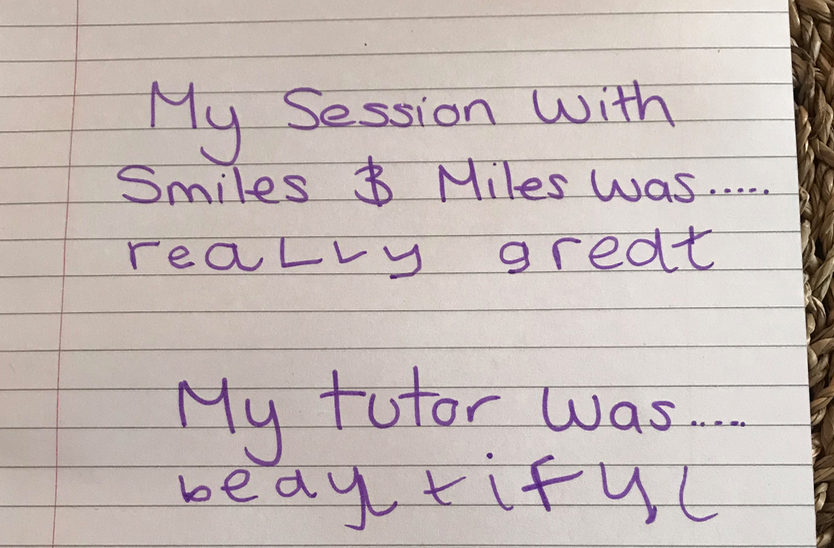 My Session With
Smiles & Miles was.....
really great
My tutor was.....
beaytifyl